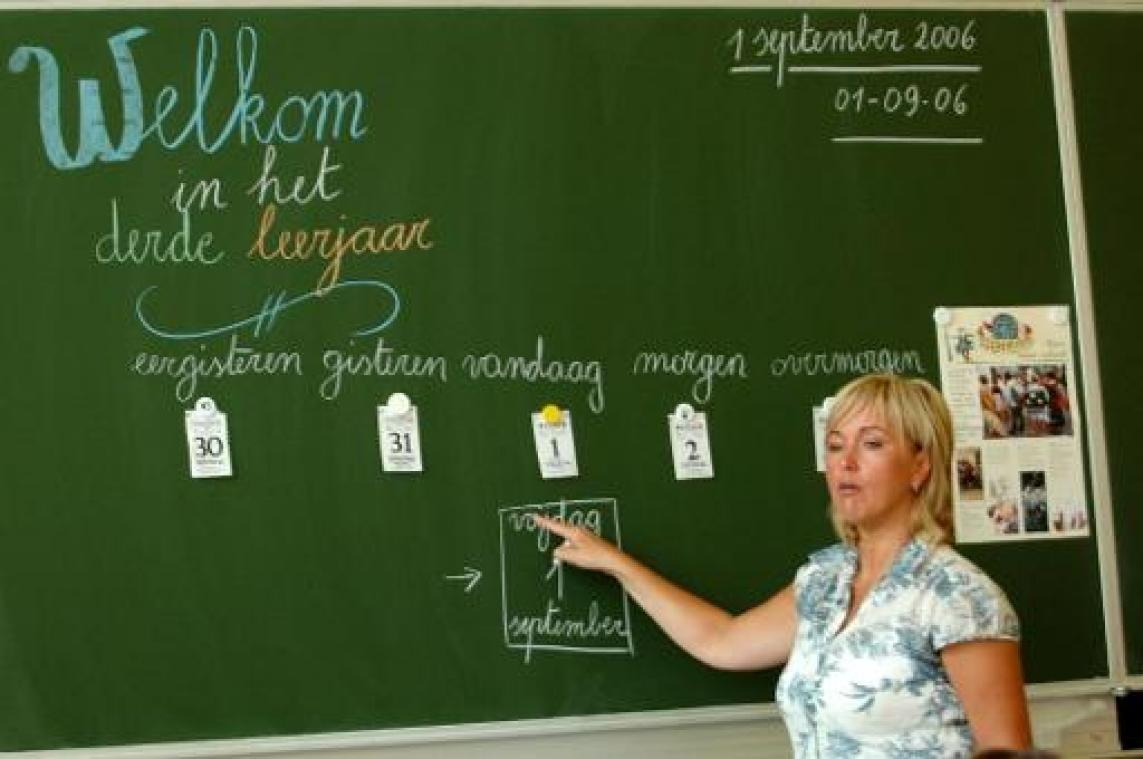 Welkom
in het
derde leerjaar
1 september 2006
01-09-06
eergisteren gisteren vandaag morgen overmorgen
30 31 1 2
vrijdag
1
september